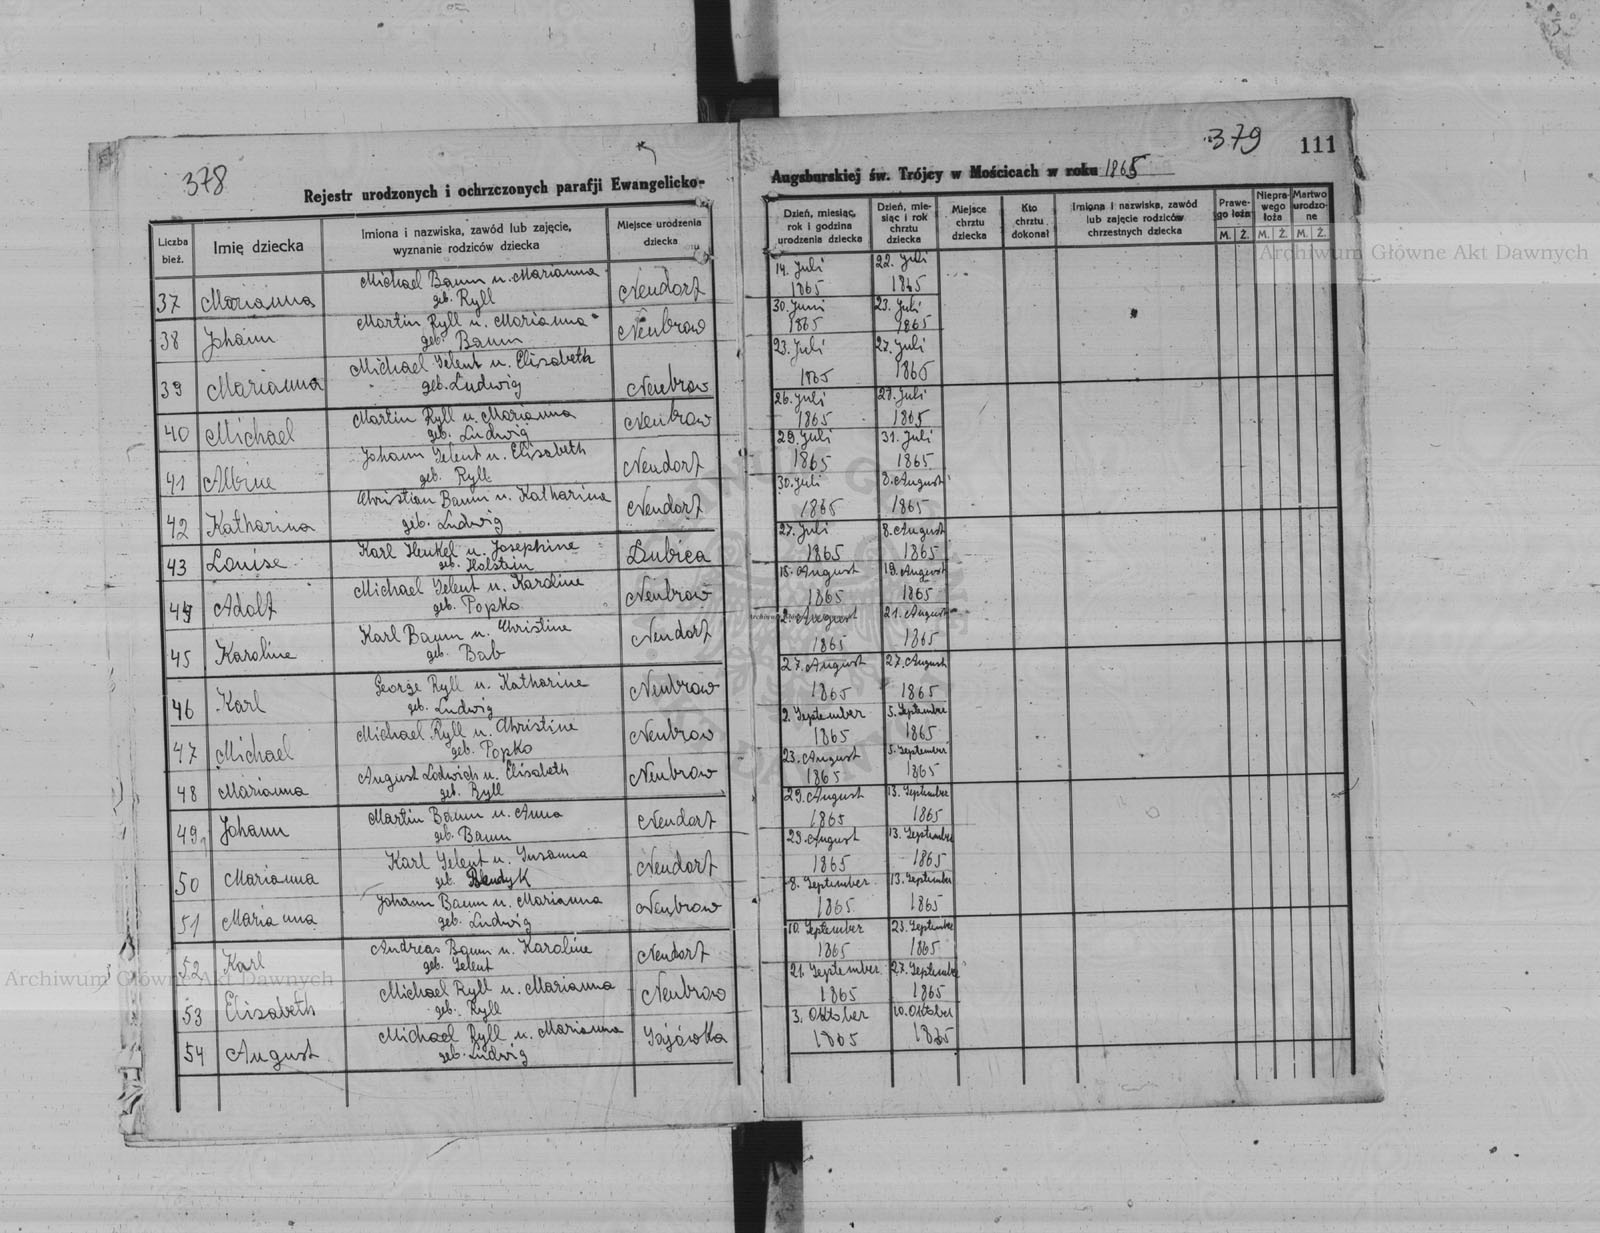 378
Rejestr urodzonych i ochrzczonych parafji Ewangelicko-
Liczba bież.
Imię dziecka
Imiona i nazwiska, zawód lub zajęcie, wyznanie rodziców dziecka
Miejsce urodzenia dziecka
37 Marianna Michael Baum u. Marianna geb. Ryll Neudorf
38 Johann Martin Ryll u. Marianna geb. Baum Neubrow
39 Marianna Michael Selent u. Elisabeth geb. Ludwig Neubrow
40 Michael Martin Ryll u. Marianna geb. Ludwig Neubrow
41 Albine Johann Selent u. Elisabeth geb. Ryll Neudorf
42 Katharina Christian Baum u. Katharina geb. Ludwig Neudorf
43 Louise Karl Henkel u. Josephine geb. Holstein Dubica
44 Adolf Michael Selent u. Karoline geb. Popko Neubrow
45 Karoline Karl Baum u. Christine geb. Bab Neudorf
46 Karl George Ryll u. Katharine geb. Ludwig Neubrow
47 Michael Michael Ryll u. Christine geb. Popko Neubrow
48 Marianna August Lodwich u. Elisabeth geb. Ryll Neubrow
49 Johann Martin Baum u. Anna geb. Baum Neudorf
50 Marianna Karl Selent u. Susanna geb. Neudorf
51 Marianna Johann Baum u. Marianna geb. Ludwig Neubrow
52 Karl Andreas Baum u. Karoline geb. Selent Neudorf
53 Elisabeth Michael Ryll u. Marianna geb. Ryll Neubrow
54 August Michael Ryll u. Marianna geb. Ludwig Sajówka
379
111
Augsburskiej św. Trójcy w Mościcach w roku 1865
Dzień, miesiąc, rok i godzina urodzenia dziecka
Dzień, miesiąc i rok chrztu dziecka
Miejsce chrztu dziecka
Kto chrztu dokonał
Imiona i nazwiska, zawód lub zajęcie rodziców chrzestnych dziecka
Prawego łoża
Nieprawego łoża
Martwo urodzone
M. Ż. M. Ż. M. Ż.
14. Juli 1865 22. Juli 1865
30. Juni 1865 23. Juli 1865
23. Juli 1865 27. Juli 1865
26. Juli 1865 27. Juli 1865
29. Juli 1865 31. Juli 1865
30. Juli 1865 8. August 1865
27. Juli 1865 8. August 1865
15. August 1865 19. August 1865
2. August 1865 21. August 1865
27. August 1865 27. August 1865
2. September 1865 5. September 1865
23. August 1865 5. September 1865
29. August 1865 13. September 1865
29. August 1865 13. September 1865
8. September 1865 13. September 1865
10. September 1865 23. September 1865
21. September 1865 27. September 1865
3. Oktober 1865 10. Oktober 1865
Archiwum Główne Akt Dawnych
Archiwum Główne Akt Dawnych